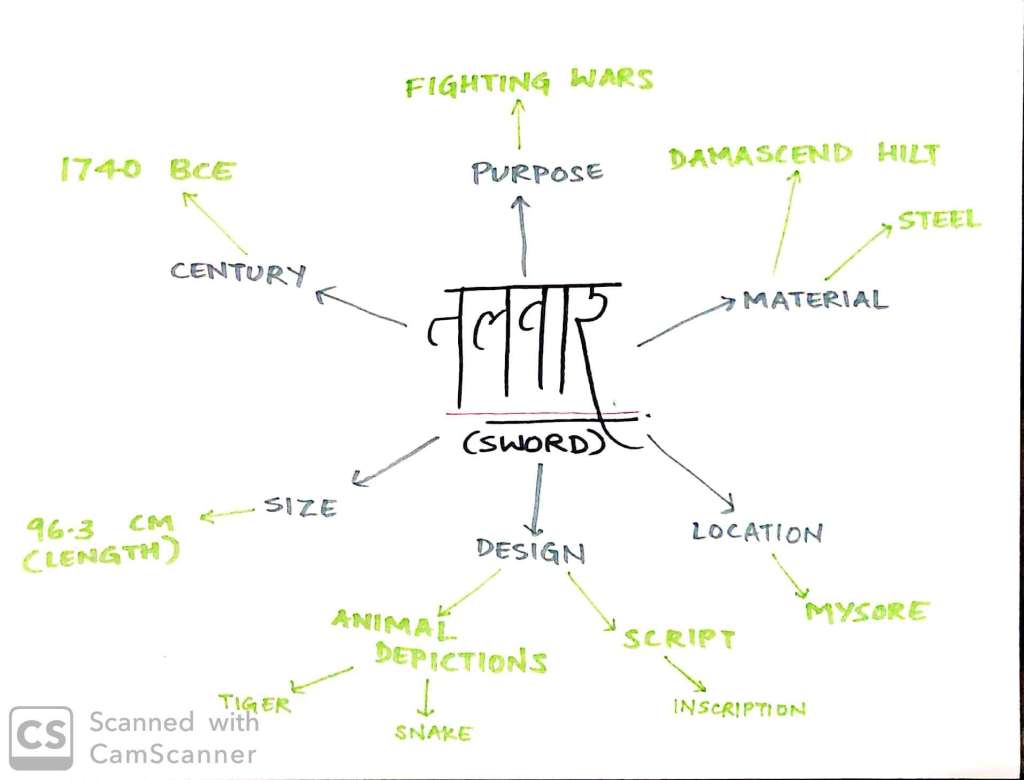 FIGHTING WARS
1740 BCE
PURPOSE
DAMASCEND HILT
STEEL
CENTURY
MATERIAL
तलवार
(SWORD)
SIZE
96.3 CM
(LENGTH)
DESIGN
LOCATION
MYSORE
ANIMAL
DEPICTIONS
SCRIPT
TIGER
SNAKE
INSCRIPTION
CS
Scanned with
CamScanner